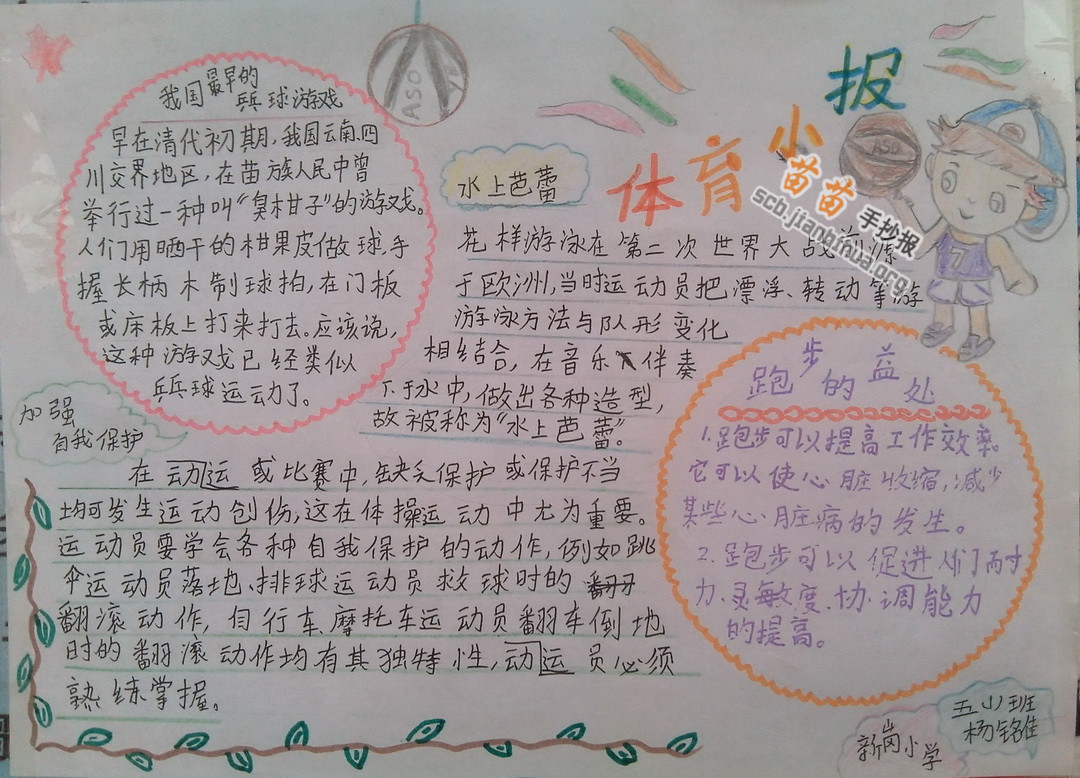 体育小报
苗苗手抄报
scb.jianbihua.org
ASO
ASO
7
我国最早的
乒球游戏
早在清代初期,我国云南、四
川交界地区,在苗族人民中曾
举行过一种叫“臭柑子”的游戏。
人们用晒干的柑果皮做球,手
握长柄木制球拍,在门板
或床板上打来打去。应该说,
这种游戏已经类似
乒球运动了。
水上芭蕾
花样游泳在第二次世界大战前
于欧洲,当时运动员把漂浮、转动等游
游泳方法与队形变化
相结合,在音乐伴奏
下于水中,做出各种造型,
故被称为“水上芭蕾”。
加强
自我保护
在动运或比赛中,缺乏保护或保护不当
均可发生运动创伤,这在体操运动中尤为重要。
运动员要学会各种自我保护的动作,例如跳
伞运动员落地、排球运动员救球时的
翻滚动作,自行车、摩托车运动员翻车倒地
时的翻滚动作均有其独特性,动运员必须
熟练掌握。
跑步的益处
1.跑步可以提高工作效率。
它可以使心脏收缩,减少
某些心脏病的发生。
2.跑步可以促进人们耐
力、灵敏度、协调能力
的提高。
五山班
杨铭佳
新岗小学